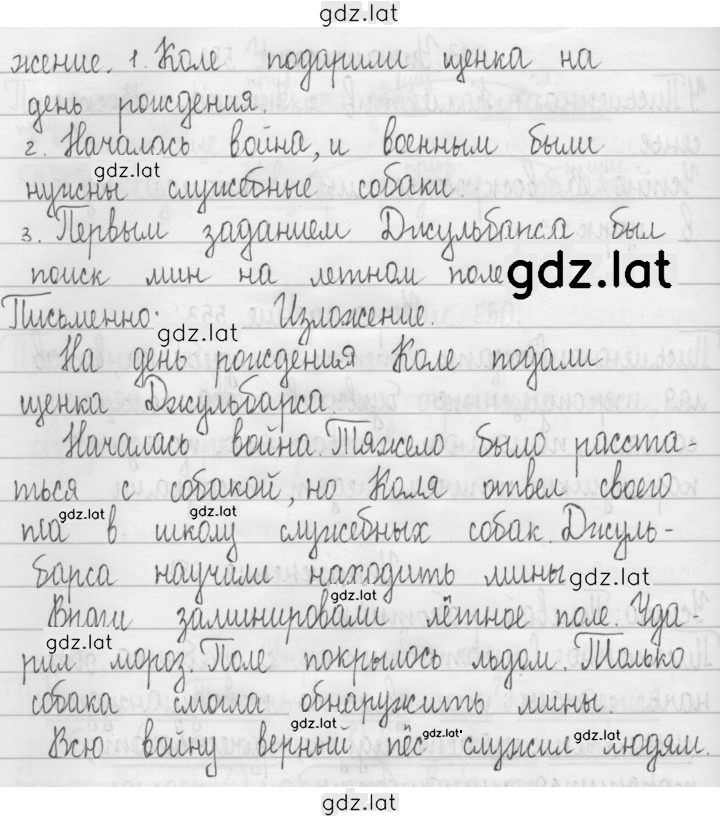 gdz.lat
жение. 1. Коле подарили щенка на
день рождения.
2. Началась война, и военным были
gdz.lat
нужны служебные собаки.
3. Первым заданием Джульбарса был
поиск мин на летном поле
gdz.lat
Письменно: Изложение.
gdz.lat
На день рождения Коле подали
щенка Джульбарса.
Началась война. Тяжело было расста-
ться с собакой, но Коля отвел своего
gdz.lat gdz.lat
пса в школу служебных собак. Джуль-
барса научили находить мины
gdz.lat
Враги заминировали лётное поле. Уда-
gdz.lat
рил мороз. Поле покрылось льдом. Только
собака смогла обнаружить мины.
gdz.lat gdz.lat gdz.lat
Всю войну верный пёс служил людям.
gdz.lat